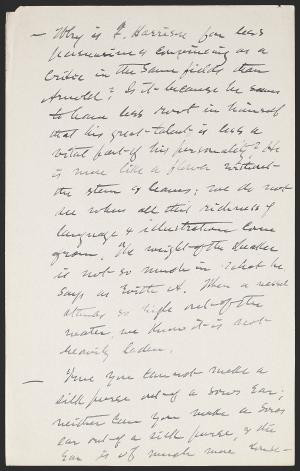 — Why is F. Harrison far less
persuasive & convincing as a
critic in the same fields than
Arnold? Is it because he seems
to have less root in himself
that his great talent is less a
vital part of his personality? He
is more like a flower without
the stem & leaves; we do not
see where all this richness of
language & illustration come
from. The weight of the speaker
is not so much in what he
says as with A. When a vessel
stands so high out of the
water, we know it is not
heavily laden.
— True you can not make a
silk purse out of a sows ear;
neither can you make a sows
ear out of a silk purse, & the
ear is of much more